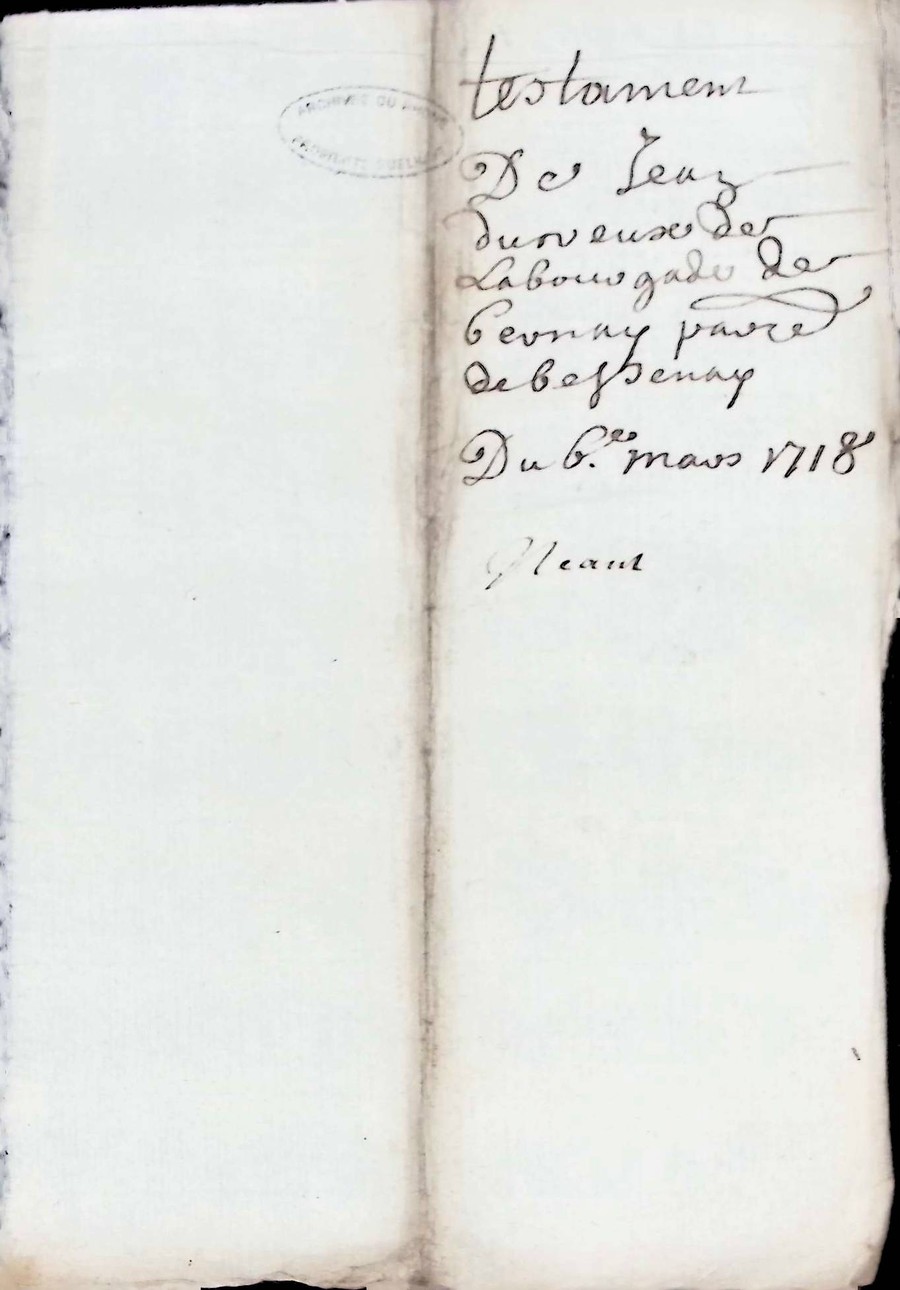 ARCHIVES DU RHÔNE
PROPRIÉTÉ PUBLIQUE
testament
De Jean
durveux de
Labourgade de
bernay parre
de bessenay
Du 6.e mars 1718
Neant